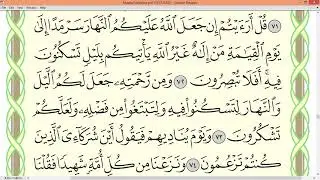 ٧١ قُلْ أَرَءَيْتُمْ إِن جَعَلَ ٱللَّهُ عَلَيْكُمُ ٱلنَّهَارَ سَرْمَدًا إِلَىٰ
يَوْمِ ٱلْقِيَٰمَةِ مَنْ إِلَٰهٌ غَيْرُ ٱللَّهِ يَأْتِيكُم بِلَيْلٍ تَسْكُنُونَ
فِيهِ ۖ أَفَلَا تُبْصِرُونَ ٧٢ وَمِن رَّحْمَتِهِۦ جَعَلَ لَكُمُ ٱلَّيْلَ
وَٱلنَّهَارَ لِتَسْكُنُوا۟ فِيهِ وَلِتَبْتَغُوا۟ مِن فَضْلِهِۦ وَلَعَلَّكُمْ
تَشْكُرُونَ ٧٣ وَيَوْمَ يُنَادِيهِمْ فَيَقُولُ أَيْنَ شُرَكَآءِىَ ٱلَّذِينَ
كُنتُمْ تَزْعُمُونَ ٧٤ وَنَزَعْنَا مِن كُلِّ أُمَّةٍ شَهِيدًا فَقُلْنَا